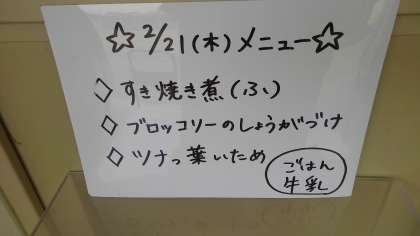 ☆2/21(木)メニュー☆
◇すき焼き煮(ふ)
◇ブロッコリーのしょうがづけ
◇ツナっ葉いため
ごはん
牛乳